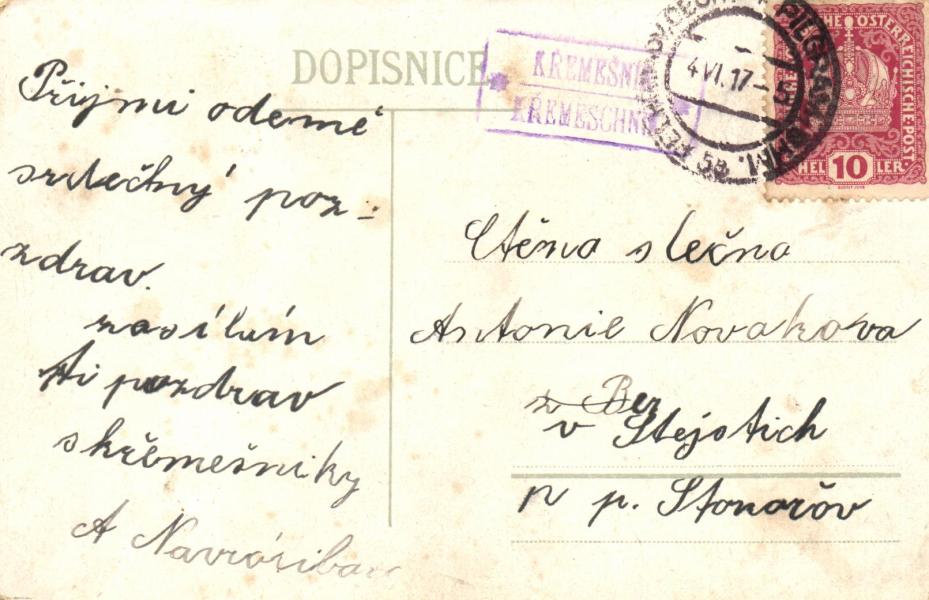 DOPISNICE
KŘEMEŠNÍK
KŘEMESCHNIK
4 VI. 17
5a
ÖSTERREICHISCHE·POST
HEL 10 LER
Přijmi odemě
srdečný poz-
zdrav.
zasílám
ti pozdrav
s křěmešniky
A
Ctěna slečna
Antonie Novakova
v Stejstich
p p. Stonařov